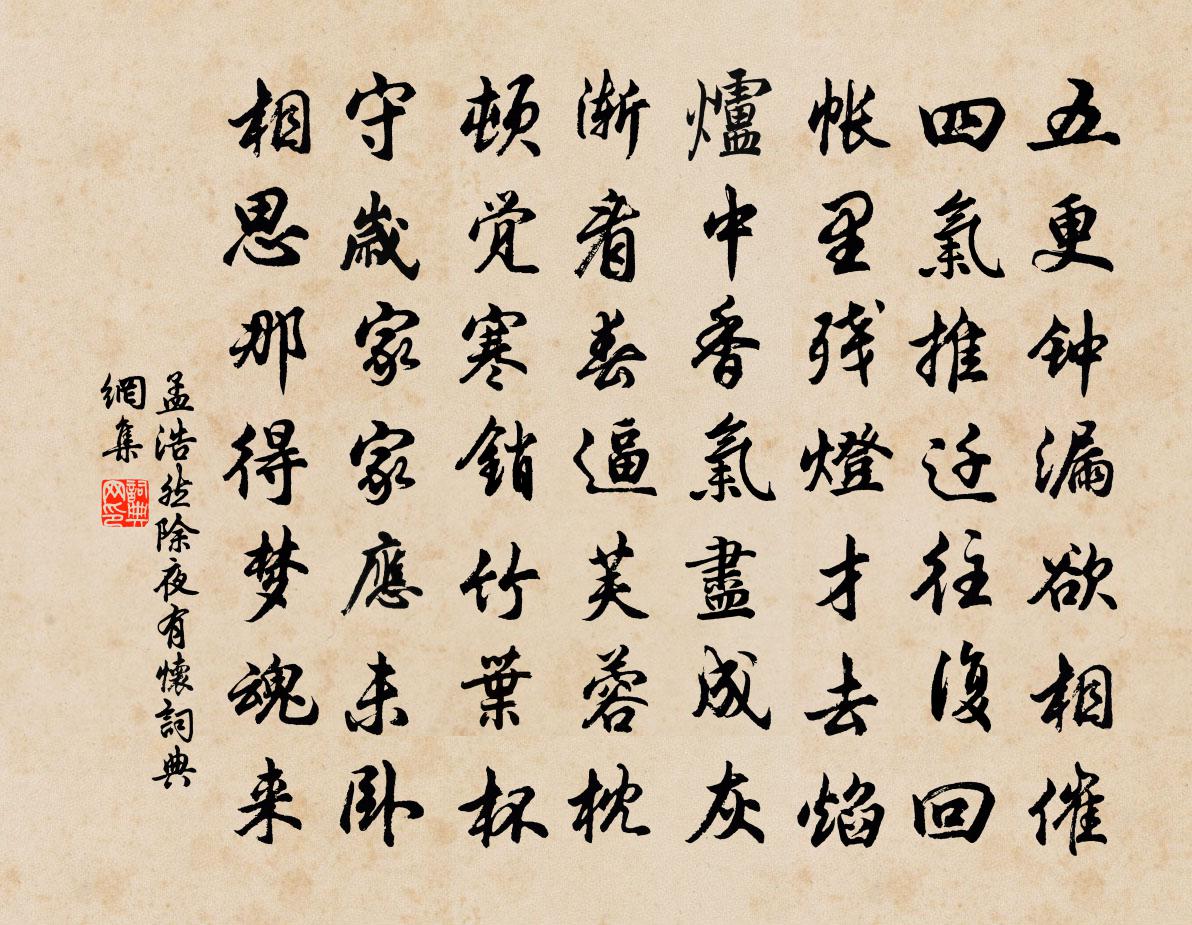 五更钟漏欲相催
四氣推迁往復回
帐里残燈才去焰
爐中香氣盡成灰
渐看春逼芙蓉枕
顿觉寒銷竹葉杯
守歲家家應未卧
相思那得梦魂来
孟浩然除夜有懷詞典
網集
詞典
网印